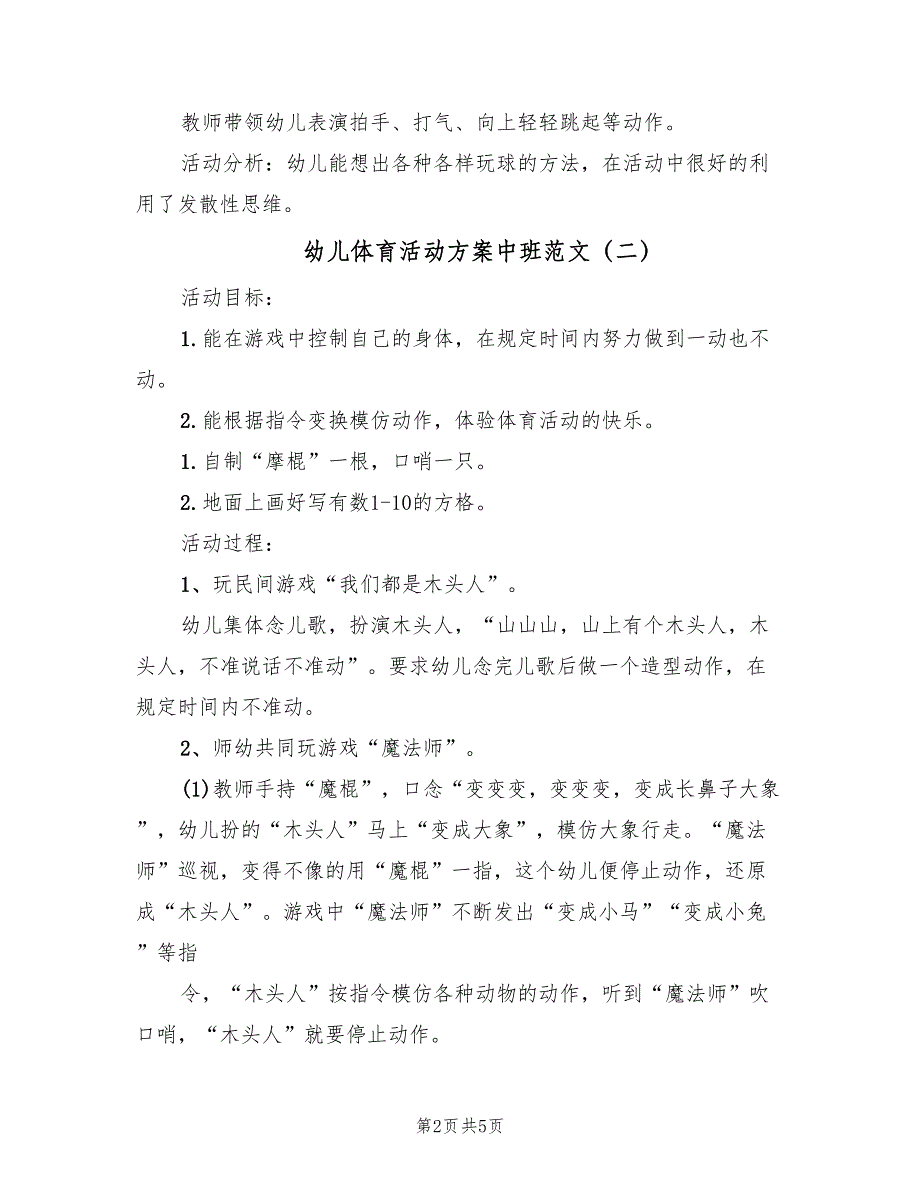 教师带领幼儿表演拍手、打气、向上轻轻跳起等动作。
活动分析：幼儿能想出各种各样玩球的方法，在活动中很好的利
用了发散性思维。
幼儿体育活动方案中班范文（二）
活动目标：
1.能在游戏中控制自己的身体，在规定时间内努力做到一动也不
动。
2.能根据指令变换模仿动作，体验体育活动的快乐。
1.自制“摩棍”一根，口哨一只。
2.地面上画好写有数1-10的方格。
活动过程：
1、玩民间游戏“我们都是木头人”。
幼儿集体念儿歌，扮演木头人，“山山山，山上有个木头人，木
头人，不准说话不准动”。要求幼儿念完儿歌后做一个造型动作，在
规定时间内不准动。
2、师幼共同玩游戏“魔法师”。
(1)教师手持“魔棍”，口念“变变变，变变变，变成长鼻子大象
”，幼儿扮的“木头人”马上“变成大象”，模仿大象行走。“魔法
师”巡视，变得不像的用“魔棍”一指，这个幼儿便停止动作，还原
成“木头人”。游戏中“魔法师”不断发出“变成小马”“变成小兔
”等指
令，“木头人”按指令模仿各种动物的动作，听到“魔法师”吹
口哨，“木头人”就要停止动作。
第2页共5页